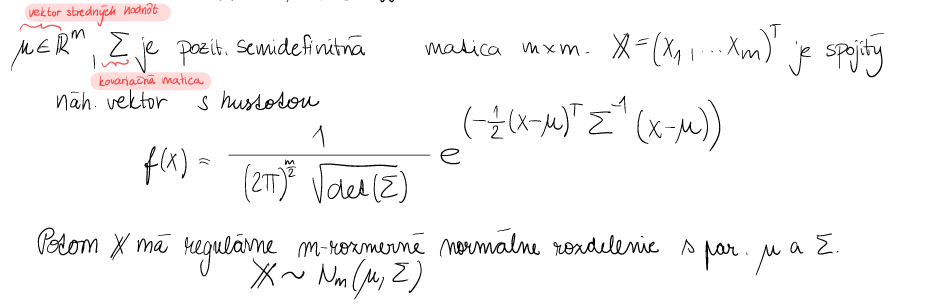 vektor stredných hodnôt
μ∈ℝ^m, Σ je pozit. semidefinitná matica m×m. 𝕏=(X₁,...Xₘ)^T je spojitý
kovariačná matica
náh. vektor s hustotou
f(x) = 1/((2π)^(m/2) √det(Σ)) e^(-1/2 (x-μ)^T Σ^-1 (x-μ))
Potom 𝕏 má regulárne m-rozmerné normálne rozdelenie s par. μ a Σ.
𝕏 ~ Nₘ(μ, Σ)